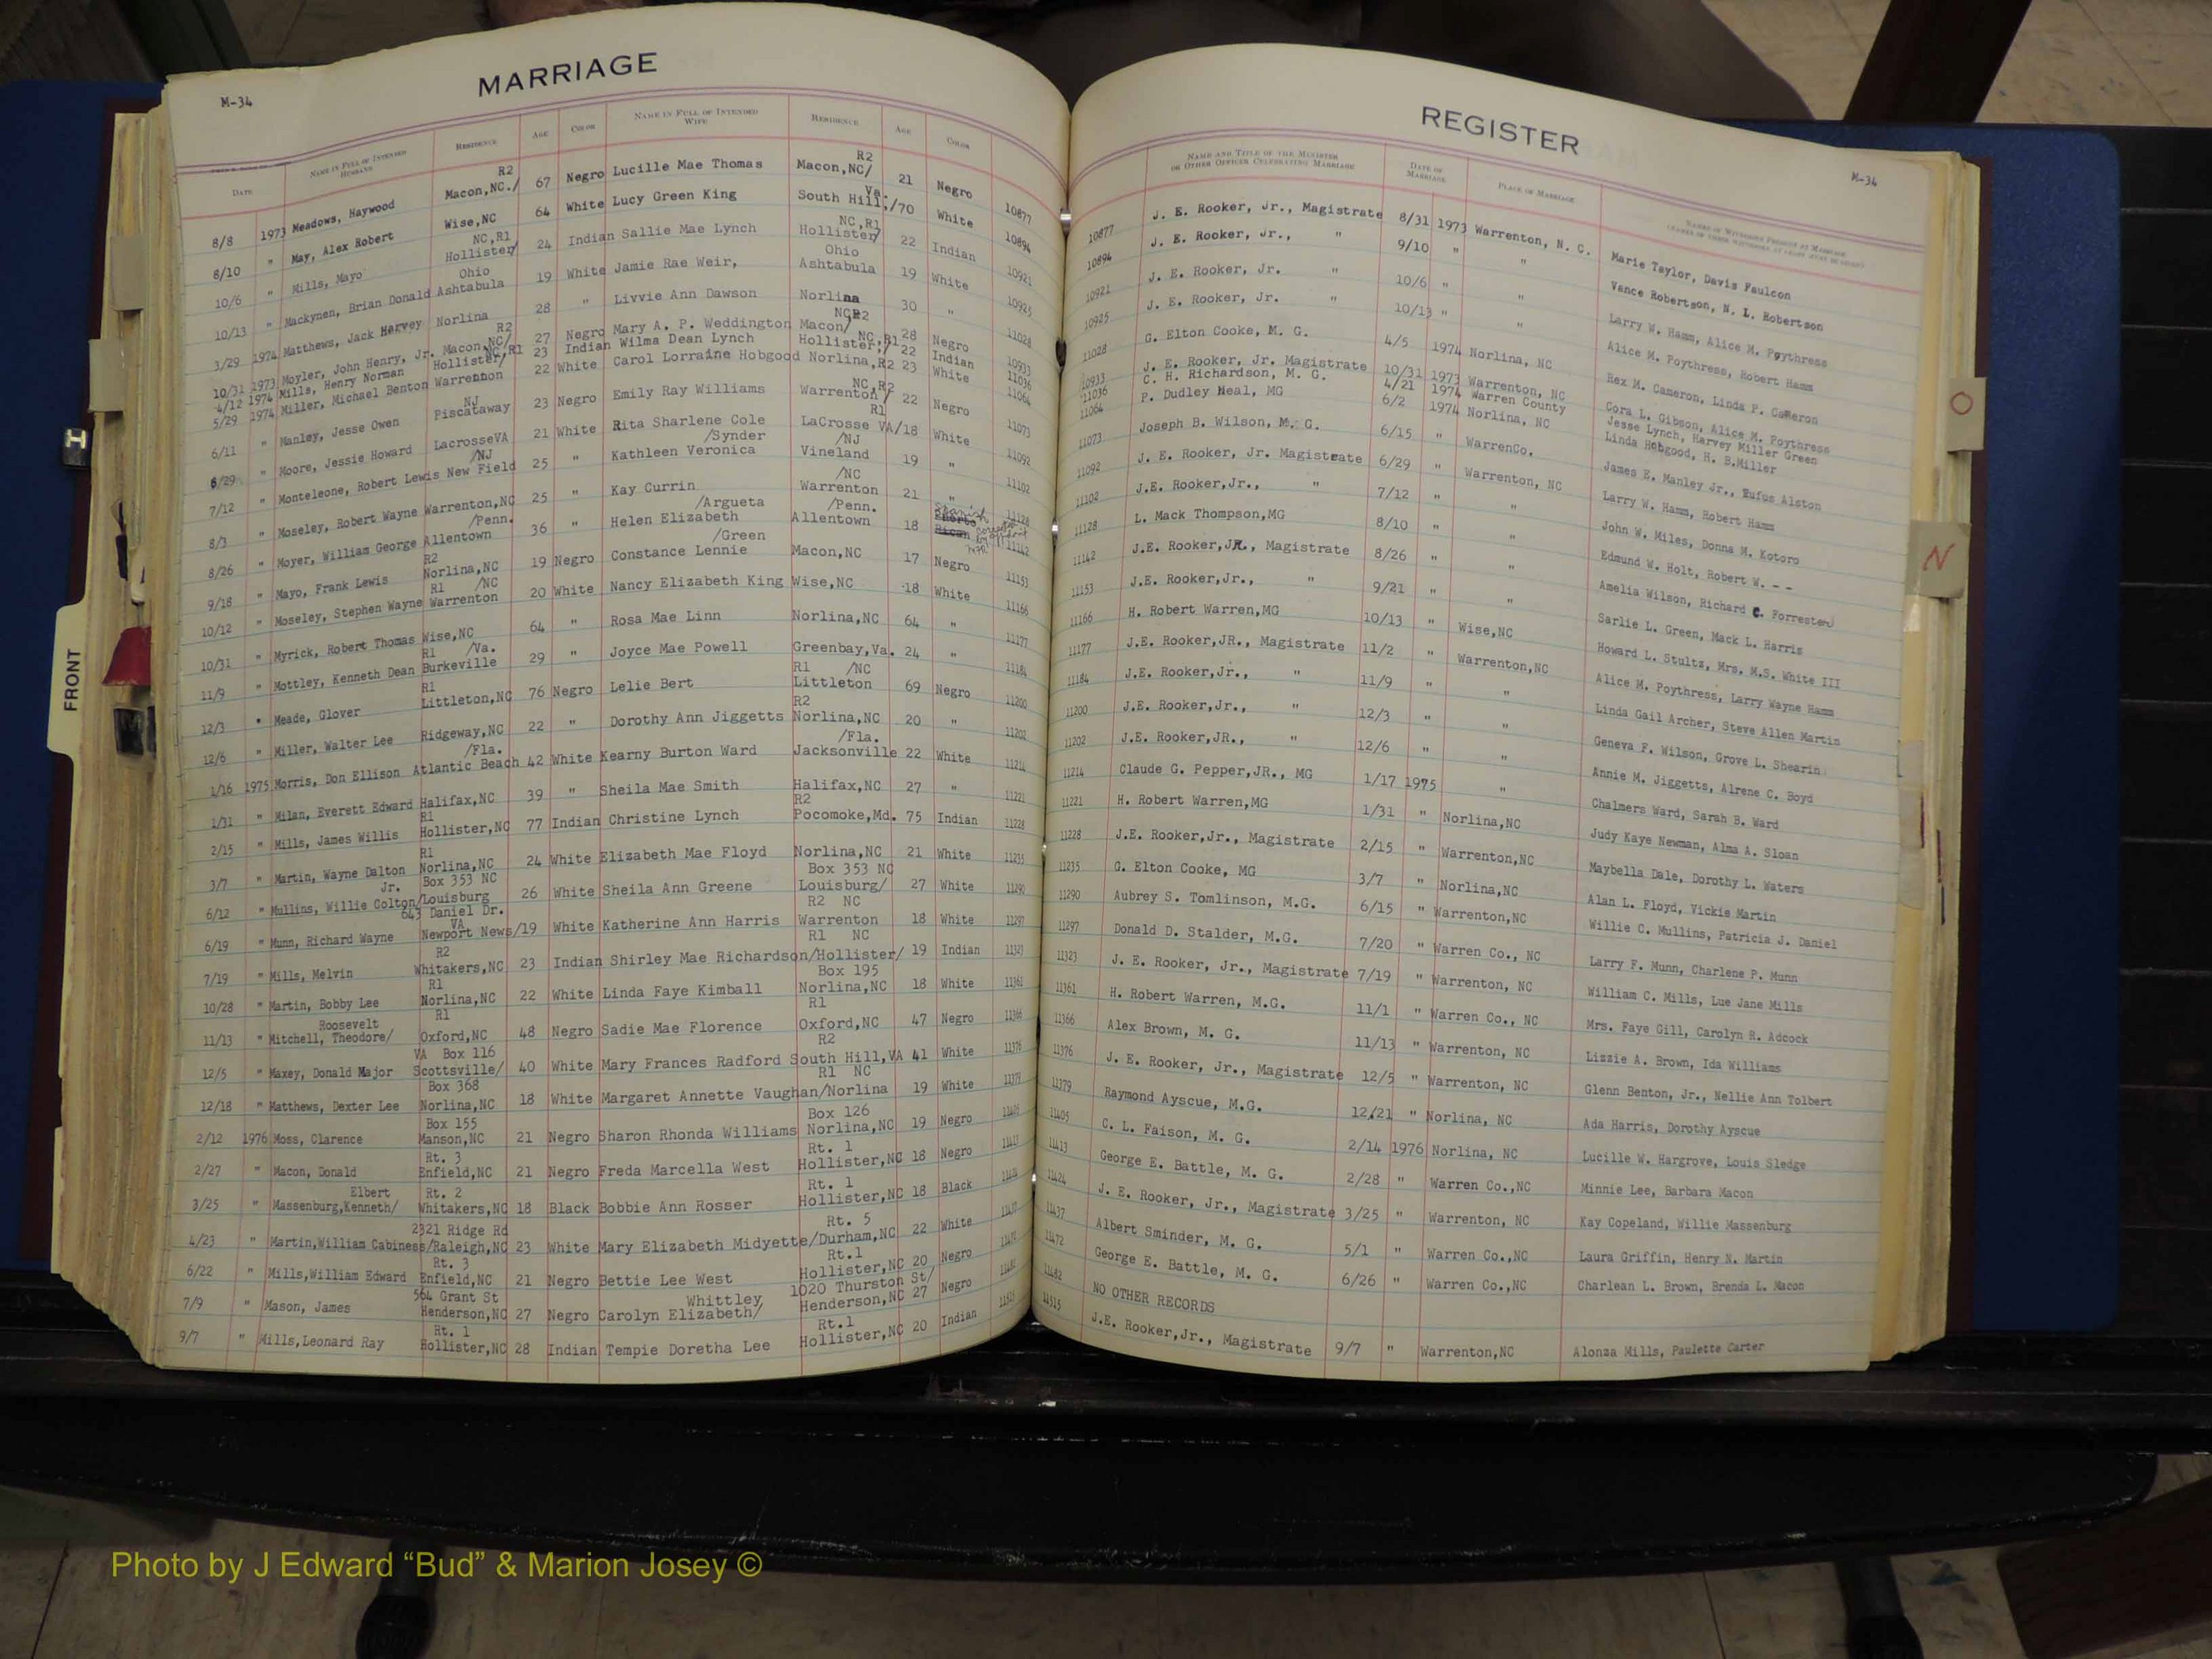 MARRIAGE
M-34
DATE NAME IN FULL OF INTENDED HUSBAND RESIDENCE AGE COLOR NAME IN FULL OF INTENDED WIFE RESIDENCE AGE COLOR
R2 R2
8/8 1973 Meadows, Haywood Macon,NC./ 67 Negro Lucille Mae Thomas Macon,NC/ 21 Negro 10877
Va.
8/10 " May, Alex Robert Wise,NC 64 White Lucy Green King South Hill,/70 White 10894
NC,R1 NC,R1
10/6 " Mills, Mayo Hollister/ 24 Indian Sallie Mae Lynch Hollister/ 22 Indian 10921
Ohio Ohio
10/13 " Mackynen, Brian Donald Ashtabula 19 White Jamie Rae Weir, Ashtabula 19 White 10925
3/29 1974 Matthews, Jack Harvey Norlina 28 " Livvie Ann Dawson Norlina 30 " 11028
R2 NCR2
10/31 1973 Moyler, John Henry, Jr. Macon,NC/ 27 Negro Mary A. P. Weddington Macon/ 28 Negro 10933
NC,R1 NC,R1
4/12 1974 Mills, Henry Norman Hollister/ 23 Indian Wilma Dean Lynch Hollister,/ 22 Indian 11036
5/29 1974 Miller, Michael Benton Warrenton 22 White Carol Lorraine Hobgood Norlina,R2 23 White 11064
NJ NC,R2
6/11 " Manley, Jesse Owen Piscataway 23 Negro Emily Ray Williams Warrenton/ 22 Negro 11073
R1
6/29 " Moore, Jessie Howard LacrosseVA 21 White Rita Sharlene Cole LaCrosse VA/18 White 11092
/NJ /Synder /NJ
7/12 " Monteleone, Robert Lewis New Field 25 " Kathleen Veronica Vineland 19 " 11102
/NC
8/3 " Moseley, Robert Wayne Warrenton,NC 25 " Kay Currin Warrenton 21 " 11128
/Penn. /Argueta /Penn. Spanish
8/26 " Moyer, William George Allentown 36 " Helen Elizabeth Allentown 18 11142
R2 /Green
9/18 " Mayo, Frank Lewis Norlina,NC 19 Negro Constance Lennie Macon,NC 17 Negro 11153
R1 /NC
10/12 " Moseley, Stephen Wayne Warrenton 20 White Nancy Elizabeth King Wise,NC 18 White 11166
10/31 " Myrick, Robert Thomas Wise,NC 64 " Rosa Mae Linn Norlina,NC 64 " 11177
R1 /Va.
11/9 " Mottley, Kenneth Dean Burkeville 29 " Joyce Mae Powell Greenbay,Va. 24 " 11184
R1 R1 /NC
12/3 " Meade, Glover Littleton,NC 76 Negro Lelie Bert Littleton 69 Negro 11200
R2
12/6 " Miller, Walter Lee Ridgeway,NC 22 " Dorothy Ann Jiggetts Norlina,NC 20 " 11202
/Fla. /Fla.
1/16 1975 Morris, Don Ellison Atlantic Beach 42 White Kearny Burton Ward Jacksonville 22 White 11214
1/31 " Milan, Everett Edward Halifax,NC 39 " Sheila Mae Smith Halifax,NC 27 " 11221
R1 R2
2/15 " Mills, James Willis Hollister,NC 77 Indian Christine Lynch Pocomoke,Md. 75 Indian 11228
R1
3/7 " Martin, Wayne Dalton Norlina,NC 24 White Elizabeth Mae Floyd Norlina,NC 21 White 11235
Jr. Box 353 NC Box 353 NC
6/12 " Mullins, Willie Colton/Louisburg 26 White Sheila Ann Greene Louisburg/ 27 White 11290
643 Daniel Dr. R2 NC
VA
6/19 " Munn, Richard Wayne Newport News/19 White Katherine Ann Harris Warrenton 18 White 11297
R2 R1 NC
7/19 " Mills, Melvin Whitakers,NC 23 Indian Shirley Mae Richardson/Hollister/ 19 Indian 11323
R1 Box 195
10/28 " Martin, Bobby Lee Norlina,NC 22 White Linda Faye Kimball Norlina,NC 18 White 11361
Roosevelt R1 R1
11/13 " Mitchell, Theodore/ Oxford,NC 48 Negro Sadie Mae Florence Oxford,NC 47 Negro 11366
VA Box 116 R2
12/5 " Maxey, Donald Major Scottsville/ 40 White Mary Frances Radford South Hill,VA 41 White 11376
Box 368 R1 NC
12/18 " Matthews, Dexter Lee Norlina,NC 18 White Margaret Annette Vaughan/Norlina 19 White 11379
Box 155 Box 126
2/12 1976 Moss, Clarence Manson,NC 21 Negro Sharon Rhonda Williams Norlina,NC 19 Negro 11405
Rt. 3 Rt. 1
2/27 " Macon, Donald Enfield,NC 21 Negro Freda Marcella West Hollister,NC 18 Negro 11413
Elbert Rt. 2 Rt. 1
3/25 " Massenburg,Kenneth/ Whitakers,NC 18 Black Bobbie Ann Rosser Hollister,NC 18 Black 11424
2321 Ridge Rd Rt. 5
4/23 " Martin,William Cabiness/Raleigh,NC 23 White Mary Elizabeth Midyette/Durham,NC 22 White 11437
Rt. 3 Rt.1
6/22 " Mills,William Edward Enfield,NC 21 Negro Bettie Lee West Hollister,NC 20 Negro 11472
564 Grant St Whittley 1020 Thurston St/
7/9 " Mason, James Henderson,NC 27 Negro Carolyn Elizabeth/ Henderson,NC 27 Negro 11482
Rt. 1 Rt.1
9/7 " Mills,Leonard Ray Hollister,NC 28 Indian Tempie Doretha Lee Hollister,NC 20 Indian 11515
REGISTER
M-34
NAME AND TITLE OF THE MINISTER OR OTHER OFFICER CELEBRATING MARRIAGE DATE OF MARRIAGE PLACE OF MARRIAGE NAMES OF WITNESSES PRESENT AT MARRIAGE
10877 J. E. Rooker, Jr., Magistrate 8/31 1973 Warrenton, N. C. Marie Taylor, Davis Faulcon
10894 J. E. Rooker, Jr., " 9/10 " " Vance Robertson, N. L. Robertson
10921 J. E. Rooker, Jr. " 10/6 " " Larry W. Hamm, Alice M. Poythress
10925 J. E. Rooker, Jr. " 10/13 " " Alice M. Poythress, Robert Hamm
11028 G. Elton Cooke, M. G. 4/5 1974 Norlina, NC Rex M. Cameron, Linda P. Cameron
10933 J. E. Rooker, Jr. Magistrate 10/31 1973 Warrenton, NC Cora L. Gibson, Alice M. Poythress
11036 C. H. Richardson, M. G. 4/21 1974 Warren County Jesse Lynch, Harvey Miller Green
11064 P. Dudley Heal, MG 6/2 1974 Norlina, NC Linda Hobgood, H. B.Miller
11073 Joseph B. Wilson, M. G. 6/15 " WarrenCo. James E. Manley Jr., Rufus Alston
11092 J. E. Rooker, Jr. Magistrate 6/29 " Warrenton, NC Larry W. Hamm, Robert Hamm
11102 J.E. Rooker,Jr., " 7/12 " " John W. Miles, Donna M. Kotoro
11128 L. Mack Thompson,MG 8/10 " " Edmund W. Holt, Robert W. - -
11142 J.E. Rooker,JR., Magistrate 8/26 " " Amelia Wilson, Richard C. Forrester
11153 J.E. Rooker,Jr., " 9/21 " " Sarlie L. Green, Mack L. Harris
11166 H. Robert Warren,MG 10/13 " Wise,NC Howard L. Stultz, Mrs. M.S. White III
11177 J.E. Rooker,JR., Magistrate 11/2 " Warrenton,NC Alice M. Poythress, Larry Wayne Hamm
11184 J.E. Rooker,Jr., " 11/9 " " Linda Gail Archer, Steve Allen Martin
11200 J.E. Rooker,Jr., " 12/3 " " Geneva F. Wilson, Grove L. Shearin
11202 J.E. Rooker,JR., " 12/6 " " Annie M. Jiggetts, Alrene C. Boyd
11214 Claude G. Pepper,JR., MG 1/17 1975 " Chalmers Ward, Sarah B. Ward
11221 H. Robert Warren,MG 1/31 " Norlina,NC Judy Kaye Newman, Alma A. Sloan
11228 J.E. Rooker,Jr., Magistrate 2/15 " Warrenton,NC Maybella Dale, Dorothy L. Waters
11235 G. Elton Cooke, MG 3/7 " Norlina,NC Alan L. Floyd, Vickie Martin
11290 Aubrey S. Tomlinson, M.G. 6/15 " Warrenton,NC Willie C. Mullins, Patricia J. Daniel
11297 Donald D. Stalder, M.G. 7/20 " Warren Co., NC Larry F. Munn, Charlene P. Munn
11323 J. E. Rooker, Jr., Magistrate 7/19 " Warrenton, NC William C. Mills, Lue Jane Mills
11361 H. Robert Warren, M.G. 11/1 " Warren Co., NC Mrs. Faye Gill, Carolyn R. Adcock
11366 Alex Brown, M. G. 11/13 " Warrenton, NC Lizzie A. Brown, Ida Williams
11376 J. E. Rooker, Jr., Magistrate 12/5 " Warrenton, NC Glenn Benton, Jr., Nellie Ann Tolbert
11379 Raymond Ayscue, M.G. 12/21 " Norlina, NC Ada Harris, Dorothy Ayscue
11405 C. L. Faison, M. G. 2/14 1976 Norlina, NC Lucille W. Hargrove, Louis Sledge
11413 George E. Battle, M. G. 2/28 " Warren Co.,NC Minnie Lee, Barbara Macon
11424 J. E. Rooker, Jr., Magistrate 3/25 " Warrenton, NC Kay Copeland, Willie Massenburg
11437 Albert Sminder, M. G. 5/1 " Warren Co.,NC Laura Griffin, Henry N. Martin
11472 George E. Battle, M. G. 6/26 " Warren Co.,NC Charlean L. Brown, Brenda L. Macon
11482 NO OTHER RECORDS
11515 J.E. Rooker,Jr., Magistrate 9/7 " Warrenton,NC Alonza Mills, Paulette Carter
O
N
FRONT
Photo by J Edward “Bud” & Marion Josey ©